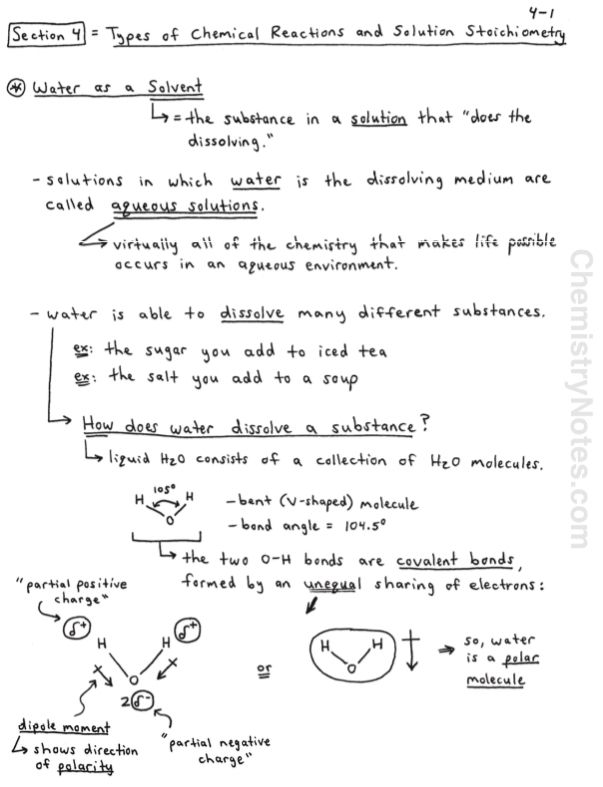 4-1
Section 4 = Types of Chemical Reactions and Solution Stoichiometry
* Water as a Solvent
↳ = the substance in a solution that "does the
dissolving."
- solutions in which water is the dissolving medium are
called aqueous solutions.
↳ virtually all of the chemistry that makes life possible
occurs in an aqueous environment.
- water is able to dissolve many different substances.
ex: the sugar you add to iced tea
ex: the salt you add to a soup
↳ How does water dissolve a substance?
↳ liquid H2O consists of a collection of H2O molecules.
105°
H H
O
- bent (V-shaped) molecule
- bond angle = 104.5°
↳ the two O-H bonds are covalent bonds,
formed by an unequal sharing of electrons:
"partial positive
charge"
δ+ δ+
H H
O
2δ-
dipole moment
↳ shows direction
of polarity
"partial negative
charge"
or
H H
O
⇒ so, water
is a polar
molecule
ChemistryNotes.com